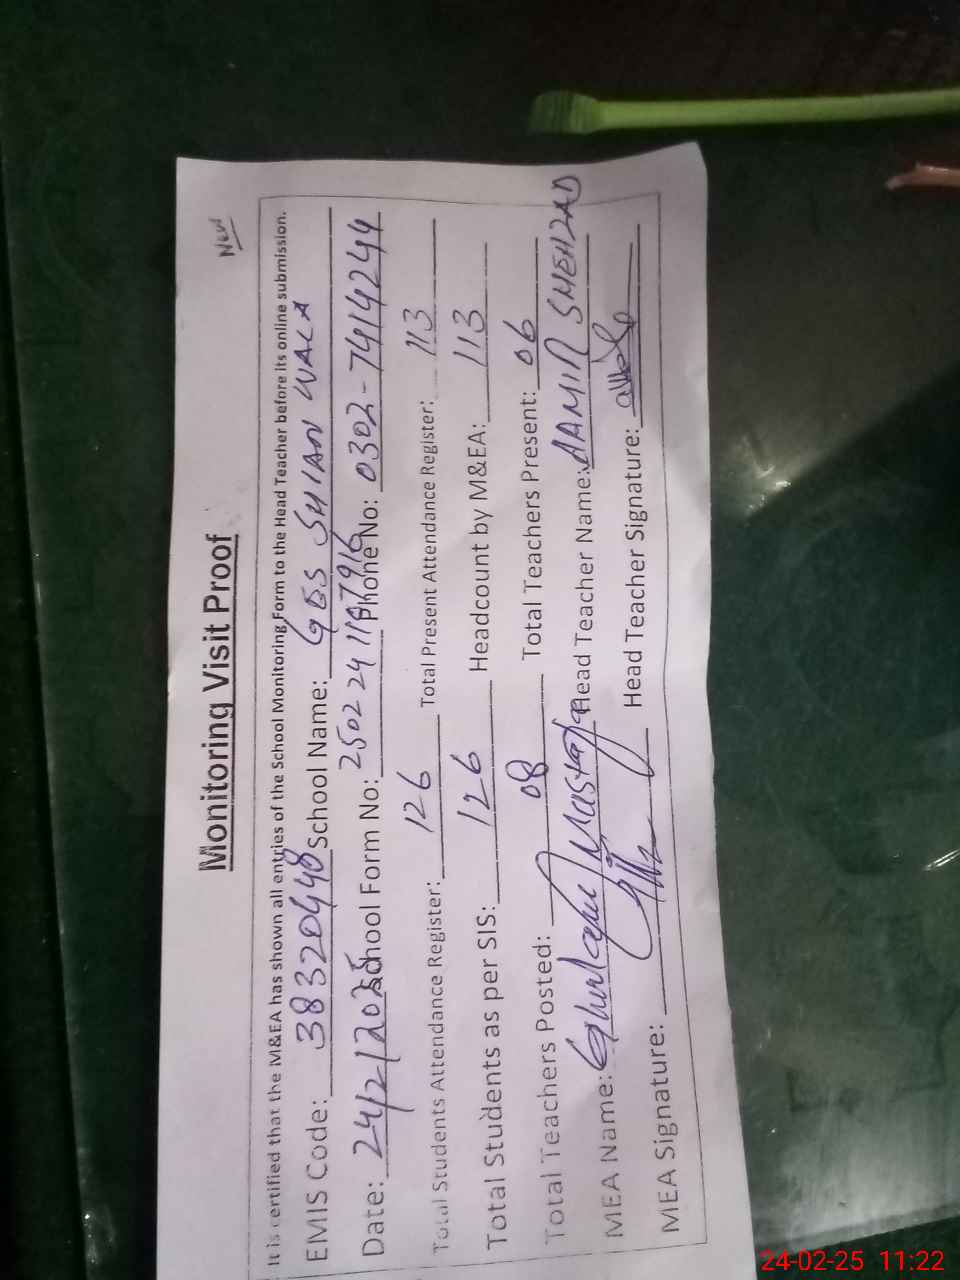 New
Monitoring Visit Proof
It is certified that the M&EA has shown all entries of the School Monitoring Form to the Head Teacher before its online submission.
EMIS Code: 38320448 School Name: GES SHIAN WALA
Date: 24/2/2025 School Form No: 25022411A7916 Phone No: 0302-7414244
Total Students Attendance Register: 126 Total Present Attendance Register: 113
Total Students as per SIS: 126 Headcount by M&EA: 113
Total Teachers Posted: 08 Total Teachers Present: 06
MEA Name: Ghulam Mustafa Head Teacher Name: AAMIR SHEHZAD
MEA Signature: Head Teacher Signature:
24-02-25 11:22